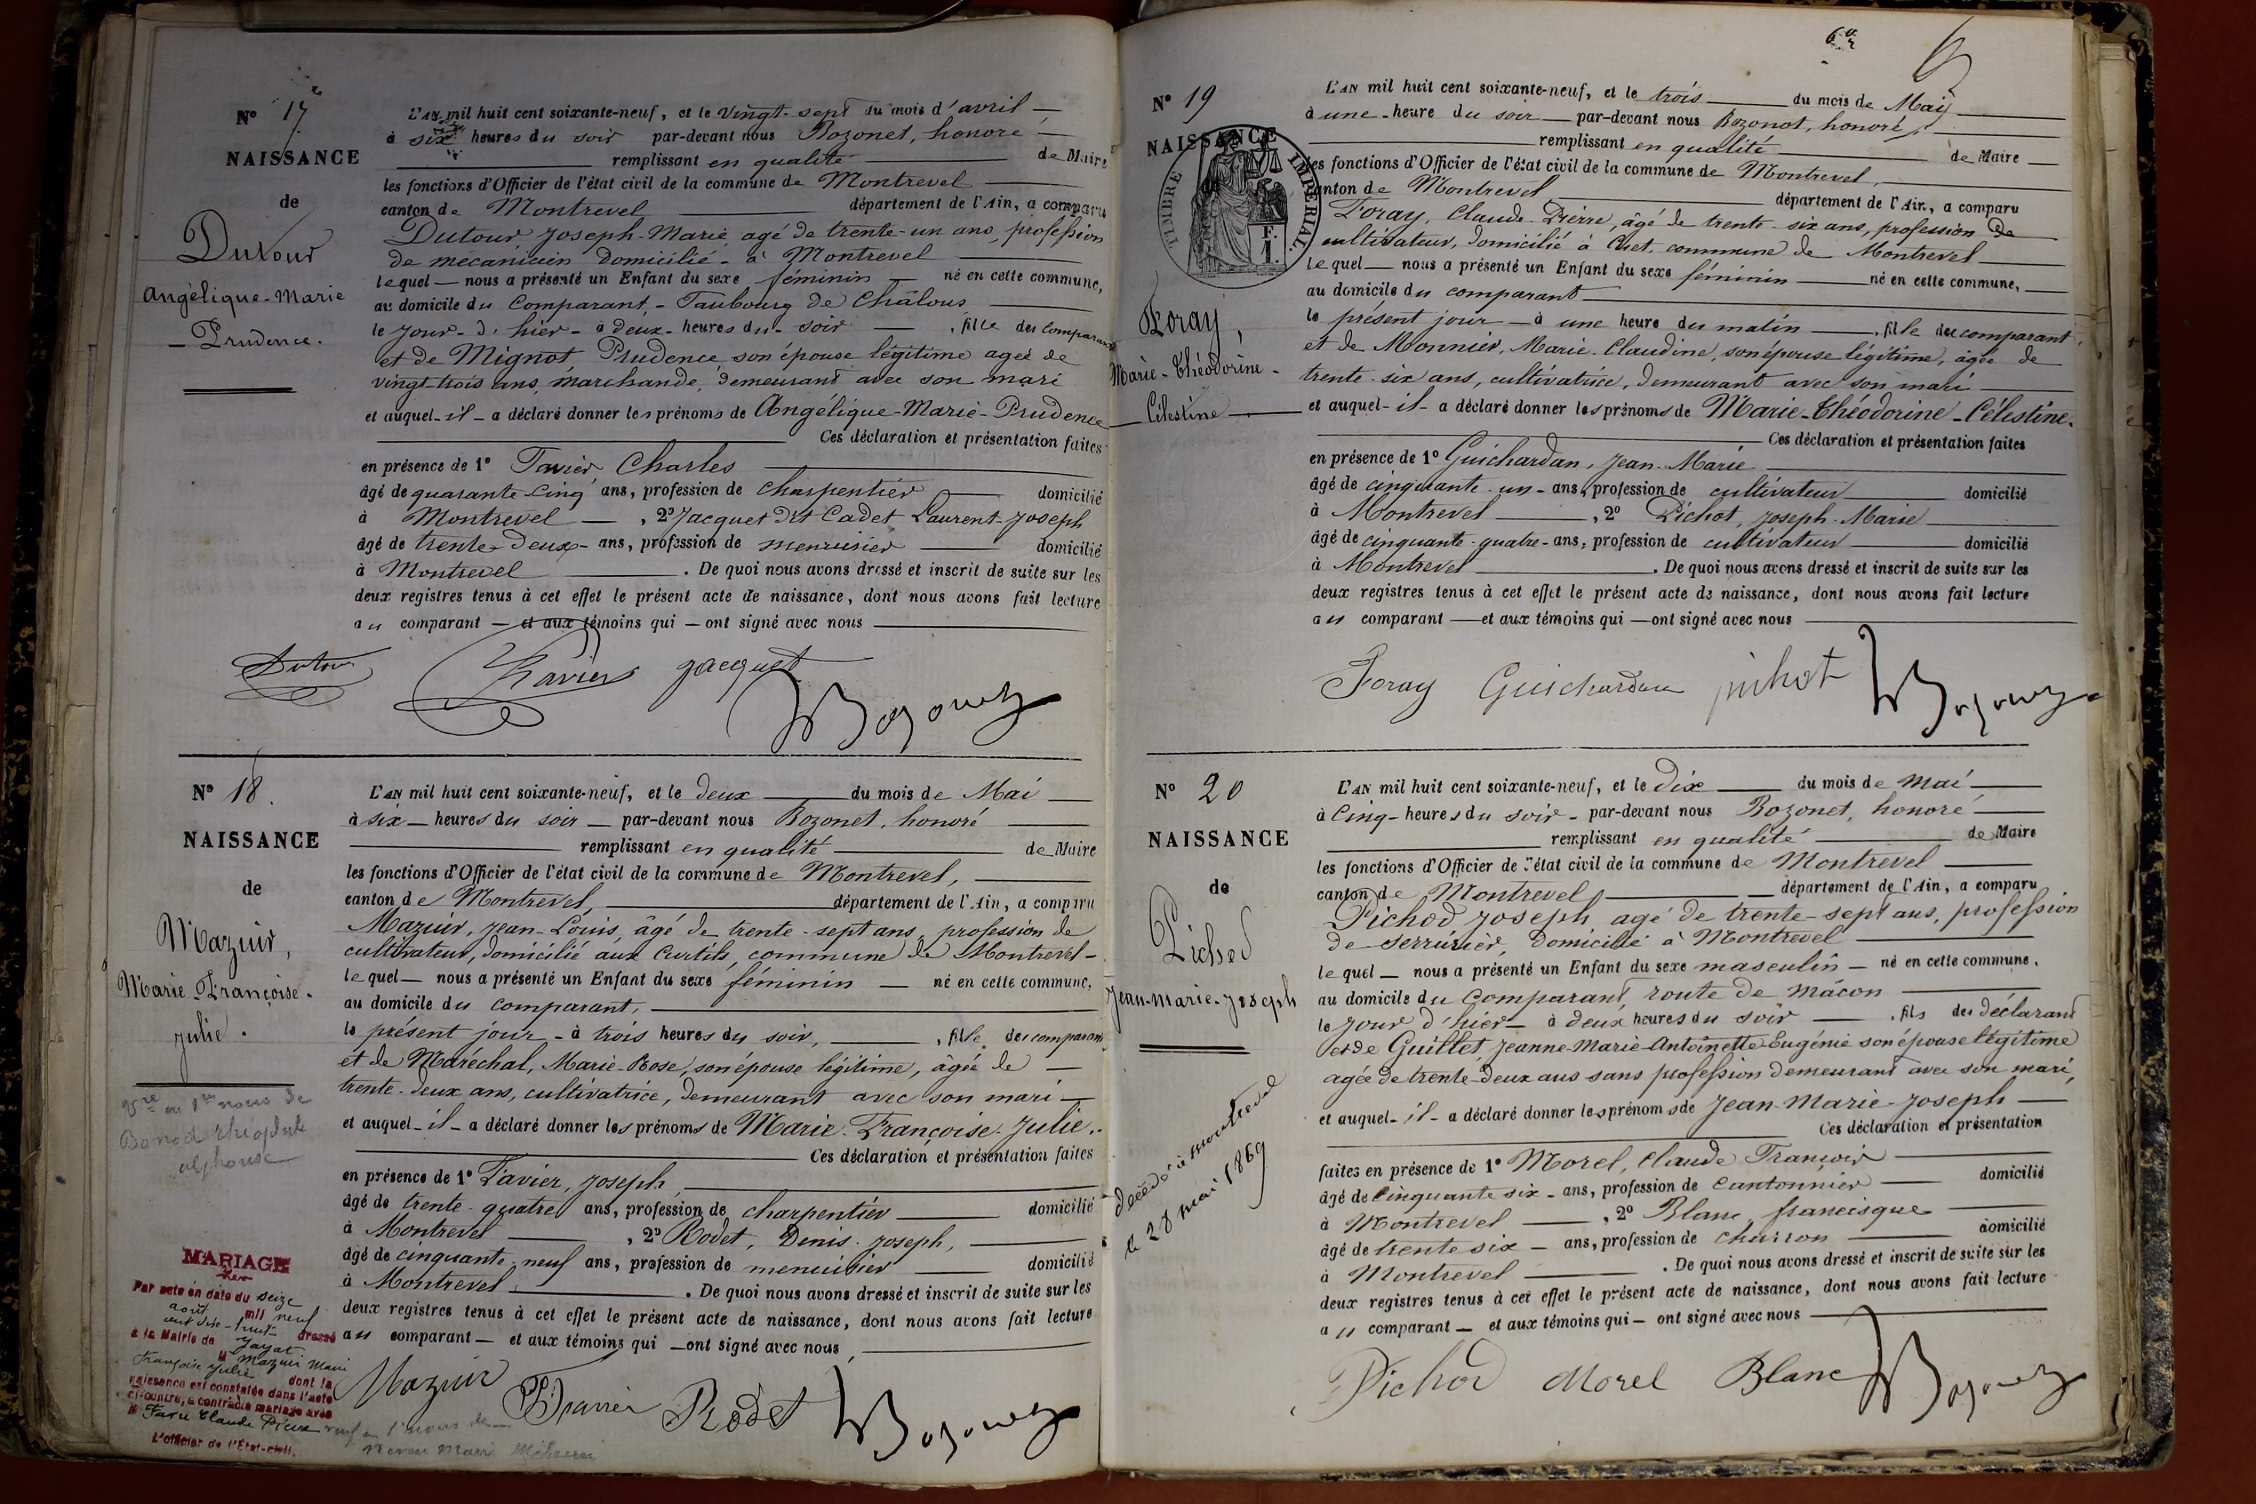 N° 17
NAISSANCE
de
Dutour
Angélique-Marie
Prudence.
L'AN mil huit cent soixante-neuf, et le vingt-sept du mois d'avril
à six heures du soir par-devant nous Bozonet, honoré
remplissant en qualité de Maire
les fonctions d'Officier de l'état civil de la commune de Montrevel
canton de Montrevel département de l'Ain, a comparu
Dutour Joseph-Marie agé de trente-un ans, profession
de mécanicien domicilié à Montrevel
lequel nous a présenté un Enfant du sexe féminin né en cette commune,
au domicile du Comparant, Faubourg de Châlons
le jour d'hier à deux heures du soir, fille du comparant
et de Mignot Prudence son épouse légitime agée de
vingt trois ans, marchande, demeurant avec son mari
et auquel il a déclaré donner les prénoms de Angélique-Marie-Prudence
Ces déclaration et présentation faites
en présence de 1° Favier Charles
âgé de quarante cinq ans, profession de charpentier domicilié
à Montrevel, 2° Jacquet dit Cadet Laurent-Joseph
âgé de trente-deux ans, profession de menuisier domicilié
à Montrevel. De quoi nous avons dressé et inscrit de suite sur les
deux registres tenus à cet effet le présent acte de naissance, dont nous avons fait lecture
au comparant et aux témoins qui ont signé avec nous
Dutour Favier Jacquet Bozonet
N° 18.
NAISSANCE
de
Mazuir,
Marie-Françoise-
Julie.
alphonse
MARIAGE
Par acte en date du seize
août mil neuf
cent dix-huit dressé
à la Mairie de Jayat
M Mazuir Marie
Françoise Julie dont la
naissance est constatée dans l'acte
ci-contre, a contracté mariage avec
M Favre Claude Pierre
L'officier de l'État-civil.
L'AN mil huit cent soixante-neuf, et le deux du mois de Mai
à six heures du soir par-devant nous Bozonet, honoré
remplissant en qualité de Maire
les fonctions d'Officier de l'état civil de la commune de Montrevel,
canton de Montrevel, département de l'Ain, a comparu
Mazuir, Jean-Louis, âgé de trente-sept ans, profession de
cultivateur, domicilié aux Curtils, commune de Montrevel
lequel nous a présenté un Enfant du sexe féminin né en cette commune,
au domicile du comparant,
le présent jour à trois heures du soir, fille du comparant
et de Maréchal, Marie-Rose, son épouse légitime, âgée de
trente-deux ans, cultivatrice, demeurant avec son mari
et auquel il a déclaré donner les prénoms de Marie-Françoise-Julie.
Ces déclaration et présentation faites
en présence de 1° Favier, Joseph,
âgé de trente-quatre ans, profession de charpentier domicilié
à Montrevel, 2° Rodet, Denis-Joseph,
âgé de cinquante-neuf ans, profession de menuisier domicilié
à Montrevel. De quoi nous avons dressé et inscrit de suite sur les
deux registres tenus à cet effet le présent acte de naissance, dont nous avons fait lecture
au comparant et aux témoins qui ont signé avec nous,
Mazuir Favier Rodet Bozonet
N° 19
NAISSANCE
TIMBRE IMPERIAL.
Foray,
Marie-Théodorine-
Célestine
L'AN mil huit cent soixante-neuf, et le trois du mois de Mai
à une heure du soir par-devant nous Bozonet, honoré,
remplissant en qualité de Maire
les fonctions d'Officier de l'état civil de la commune de Montrevel,
canton de Montrevel département de l'Ain, a comparu
Foray, Claude-Pierre, âgé de trente-six ans, profession de
cultivateur, domicilié à Cuet, commune de Montrevel
lequel nous a présenté un Enfant du sexe féminin né en cette commune,
au domicile du comparant
le présent jour à une heure du matin, fille du comparant
et de Monnier, Marie-Claudine, son épouse légitime, âgée de
trente-six ans, cultivatrice, demeurant avec son mari
et auquel il a déclaré donner les prénoms de Marie-Théodorine-Célestine.
Ces déclaration et présentation faites
en présence de 1° Guichardan, Jean-Marie
âgé de cinquante-un ans, profession de cultivateur domicilié
à Montrevel, 2° Pichot, Joseph-Marie
âgé de cinquante-quatre ans, profession de cultivateur domicilié
à Montrevel. De quoi nous avons dressé et inscrit de suite sur les
deux registres tenus à cet effet le présent acte de naissance, dont nous avons fait lecture
au comparant et aux témoins qui ont signé avec nous
Foray Guichardan pichot Bozonet
N° 20
NAISSANCE
de
Pichod
Jean-marie-Joseph
Décédé à montrevel
le 28 mai 1869
L'AN mil huit cent soixante-neuf, et le dix du mois de mai
à cinq heures du soir par-devant nous Bozonet, honoré
remplissant en qualité de Maire
les fonctions d'Officier de l'état civil de la commune de Montrevel
canton de Montrevel département de l'Ain, a comparu
Pichod Joseph agé de trente-sept ans, profession
de serrurier, domicilié à Montrevel
lequel nous a présenté un Enfant du sexe masculin né en cette commune,
au domicile du Comparant, route de mâcon
le jour d'hier à deux heures du soir, fils du déclarant
et de Guillet, Jeanne-Marie-Antoinette-Eugénie son épouse légitime
agée de trente-deux ans sans profession demeurant avec son mari,
et auquel il a déclaré donner les prénoms de Jean-Marie-Joseph
Ces déclaration et présentation
faites en présence de 1° Morel, Claude François
âgé de cinquante six ans, profession de Cantonnier domicilié
à Montrevel, 2° Blanc, francisque
âgé de trente six ans, profession de charron domicilié
à Montrevel. De quoi nous avons dressé et inscrit de suite sur les
deux registres tenus à cet effet le présent acte de naissance, dont nous avons fait lecture
au comparant et aux témoins qui ont signé avec nous
Pichod Morel Blanc Bozonet